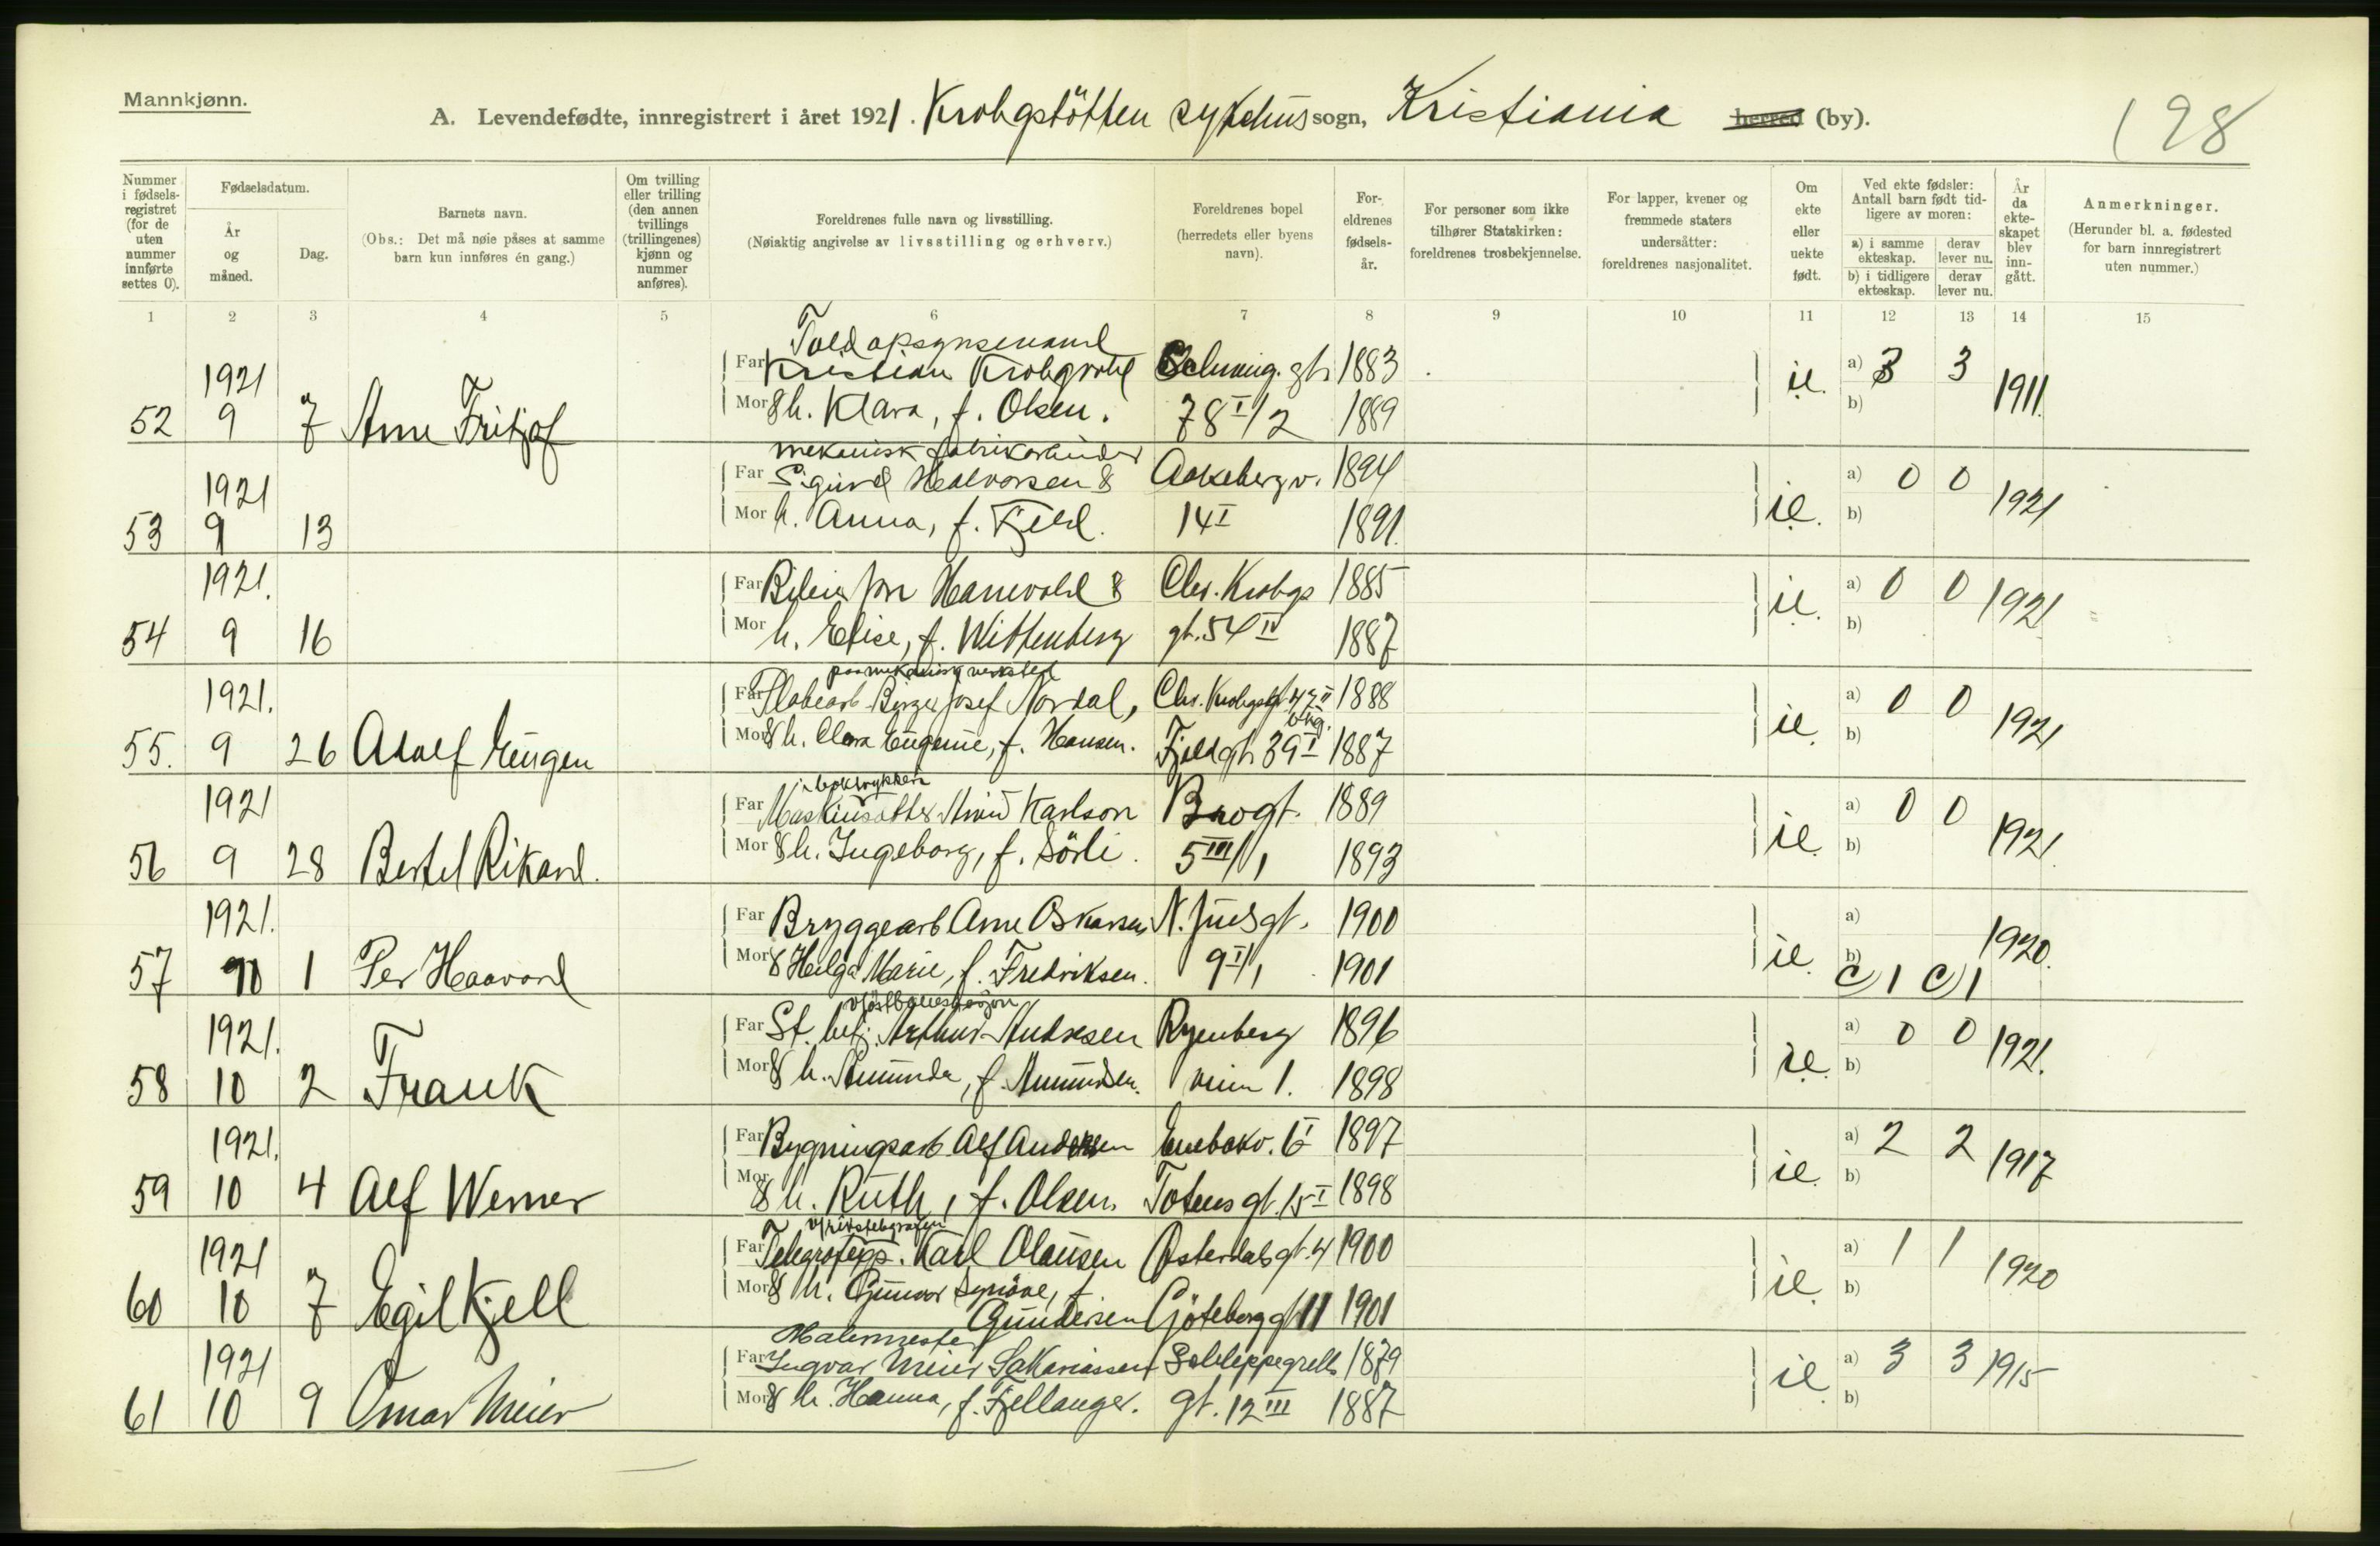 Mannkjønn.
A. Levendefødte, innregistrert i året 1921. Krohgstötten sykehus sogn, Kristiania herred (by).
198
Nummer i fødselsregistret (for de uten nummer innførte settes 0).
Fødselsdatum.
År og måned.
Dag.
Barnets navn.
(Obs.: Det må nøie påses at samme barn kun innføres én gang.)
Om tvilling eller trilling (den annen tvillings (trillingenes) kjønn og nummer anføres).
Foreldrenes fulle navn og livsstilling.
(Nøiaktig angivelse av livsstilling og erhverv.)
Foreldrenes bopel (herredets eller byens navn).
For-eldrenes fødsels-år.
For personer som ikke tilhører Statskirken: foreldrenes trosbekjennelse.
For lapper, kvener og fremmede staters undersåtter: foreldrenes nasjonalitet.
Om ekte eller uekte født.
Ved ekte fødsler: Antall barn født tidligere av moren:
a) i samme ekteskap. derav lever nu.
b) i tidligere ekteskap. derav lever nu.
År da ekte-skapet blev inn-gått.
Anmerkninger.
(Herunder bl. a. fødested for barn innregistrert uten nummer.)
1 2 3 4 5 6 7 8 9 10 11 12 13 14 15
Toldopsynsmand
1921 Far Kristian Krohgvold gt. 1883 a) 3 3
52 9 7 Arne Fritjof Mor & h. Klara, f. Olsen. 78 I/2 1889 ie. b) 1911.
mekanisk fabrikarbeider
1921 Far Sigurd Halvorsen & Aakebergv. 1894 a) 0 0
53 9 13 Mor h. Anna, f. Kjeld. 14 I 1891. ie. b) 1921
1921. Far Jon Hanevold & Chr. Krohgs 1885 a) 0 0
54 9 16 Mor h. Elise, f. Wittenberg gt. 54 IV 1887 ie. b) 1921
paa mekanisk verksted
1921. Far Platearb. Birger Josef Nordal, Chr. Krohgsgt 47 II 1888 a) 0 0
55. 9 26 Adolf Eugen Mor & h. Clara Eugenie, f. Hansen. Fjeldgt. 39 I 1887 ie. b) 1921
i boktrykkeri
1921 Far Maskinsætter Karlson Brogt. 1889 a) 0 0
56 9 28 Bertel Rikard. Mor & h. Ingeborg, f. Sörli. 5 III/1 1893 ie. b) 1921.
1921. Far Bryggearb Arne Oskarsen N. Juelsgt. 1900 a)
57 10 1 Per Haavard Mor & Helga Marie, f. Fredriksen. 9 II/1 1901 ie. b) c) 1 c) 1 1920.
v/östbanestasjon
1921. Far St. betj. Arthur Andresen Ryenberg 1896 a) 0 0
58 10 2 Frank Mor & h. Amunda, f. Amundsen. veien 1. 1898 ie. b) 1921.
1921. Far Bygningsarb Alf Andersen Enebakv. 6 I 1897 a) 2 2
59 10 4 Alf Werner Mor & h. Ruth, f. Olsen. Totens gt. 15 I 1898 ie. b) 1917
v/rikstelegrafen
1921 Far Telegrafepp. Karl Olausen Østerdalsgt. 4 1900 a) 1 1
60 10 7 Egil Kjell Mor & h. Gunvor Synöve, f. ie. b) 1920
Gundersen Göteborggt 11 1901
Malermester
1921 Far Ingvar Meier Sakariassen Schleppegrells 1879 a) 3 3
61 10 9 Omar Meier Mor & h. Hanna, f. Fjellanger. gt. 12 III 1887 ie b) 1915